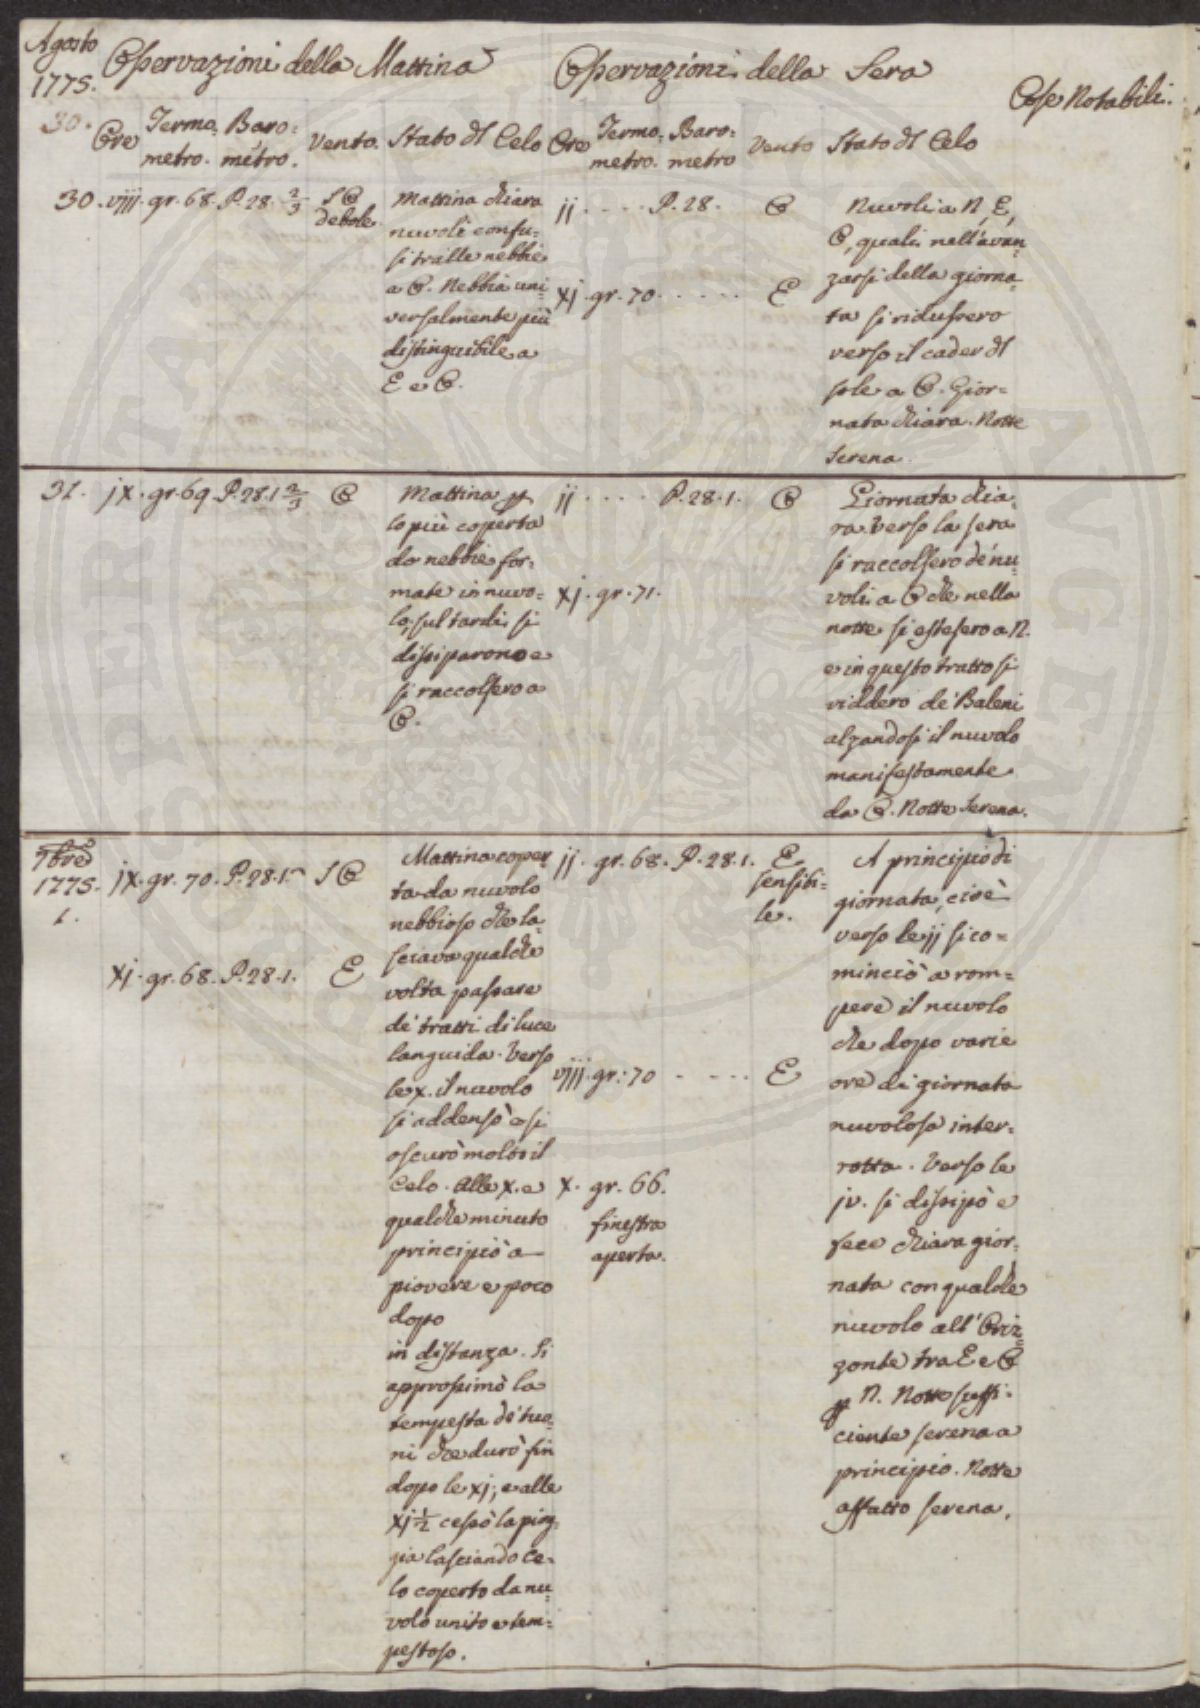 Agosto
1775.
Osservazioni della Mattina
Osservazioni della Sera
Cose Notabili.
30.
Ore
Termo, Baro=
metro. metro.
Vento.
Stato dl Celo
Ore
Termo, Baro:
metro. metro
Vento
Stato dl Celo
30. viij. gr. 68. P. 28. 2/3
S O
debole
Mattina chiara
nuvoli confu=
si tralle nebbie
a O. Nebbia uni
versalmente più
distinguibile a
E e O.
ij . . . . P. 28. O
xj. gr. 70. . . . . . E
Nuvoli a N, E,
O, quali nell'avan
zarsi della giorna
ta si ridussero
verso il cader dl
sole a O. Gior=
nata chiara. Notte
Serena.
31. jx. gr. 69. P. 28. 1 2/3 O
Mattina p
lo più coperta
da nebbie for=
mate in nuvo=
lo, sul tardi si
dissiparono e
si raccolsero a
O.
ij . . . . P. 28. 1. O
xj. gr. 71.
Giornata chia
ra. Verso la sera
si raccolsero de' nu=
voli a O che nella
notte si estesero a N.
e in questo tratto si
viddero de' Baleni
alzandosi il nuvolo
manifestamente
da O. Notte Serena.
7bre
1775.
1.
jx. gr. 70. P. 28. 1. S O
xj. gr. 68. P. 28. 1. E
Mattina coper
ta da nuvolo
nebbioso che la=
sciava qualche
volta passare
de' tratti di luce
languida. Verso
le x. il nuvolo
si addensò e si
oscurò molto il
Celo. Alle x. e
qualche minuto
principiò a
piovere e poco
dopo
in distanza. Si
approssimò la
tempesta de' tuo=
ni che durò fin
dopo le xj, e alle
xj 1/2 cessò la piog
gia lasciando ce=
lo coperto da nu
volo unito e tem=
pestoso.
ij. gr. 68. P. 28. 1. E
sensibi=
le.
viij. gr. 70 . . . . E
x. gr. 66.
finestra
aperta.
A principio di
giornata, cioè
verso le ij si co=
minciò a rom=
pere il nuvolo
che dopo varie
ore di giornata
nuvolosa inter=
rotta. Verso le
jv. si dissipò e
fece chiara gior=
nata con qualche
nuvolo all' Oriz=
zonte tra E e O
p N. Notte suffi=
ciente serena a
principio. Notte
affatto serena.